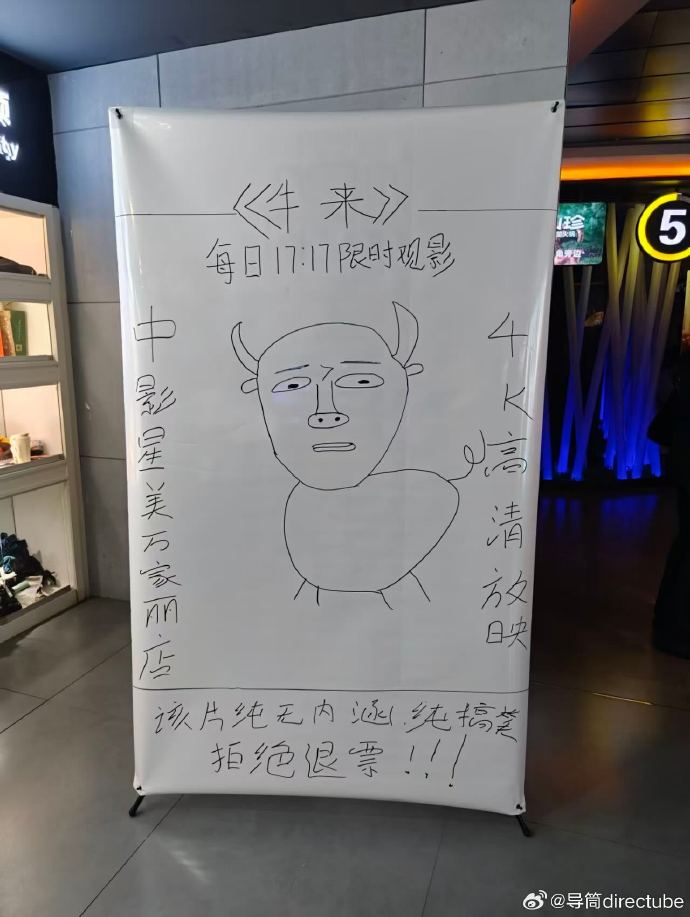 《牛来》
每日17:17限时观影
中影星美万家丽店
4K高清放映
该片纯无内涵.纯搞笑
拒绝退票!!!
5
@导筒directube